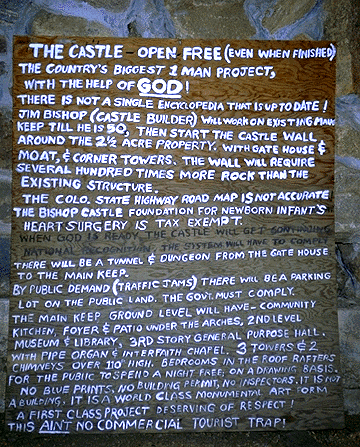 THE CASTLE - OPEN FREE (EVEN WHEN FINISHED)
THE COUNTRY'S BIGGEST 1 MAN PROJECT,
WITH THE HELP OF GOD!
THERE IS NOT A SINGLE ENCYCLOPEDIA THAT IS UP TO DATE!
JIM BISHOP (CASTLE BUILDER) WILL WORK ON EXISTING MAIN
KEEP TILL HE IS 50, THEN START THE CASTLE WALL
AROUND THE 2½ ACRE PROPERTY. WITH GATE HOUSE &
MOAT, & CORNER TOWERS. THE WALL WILL REQUIRE
SEVERAL HUNDRED TIMES MORE ROCK THAN THE
EXISTING STRUCTURE.
THE COLO. STATE HIGHWAY ROAD MAP IS NOT ACCURATE
THE BISHOP CASTLE FOUNDATION FOR NEWBORN INFANT'S
HEART SURGERY IS TAX EXEMPT
WHEN GOD IS READY, THE CASTLE WILL GET CONTINUING
NATIONAL RECOGNITION, THE SYSTEM WILL HAVE TO COMPLY
THERE WILL BE A TUNNEL & DUNGEON FROM THE GATE HOUSE
TO THE MAIN KEEP.
BY PUBLIC DEMAND (TRAFFIC JAMS) THERE WILL BE A PARKING
LOT ON THE PUBLIC LAND. THE GOVT. MUST COMPLY.
THE MAIN KEEP GROUND LEVEL WILL HAVE - COMMUNITY
KITCHEN, FOYER & PATIO UNDER THE ARCHES, 2ND LEVEL
MUSEUM & LIBRARY, 3RD STORY GENERAL PURPOSE HALL.
WITH PIPE ORGAN & INTERFAITH CHAPEL. 3 TOWERS & 2
CHIMNEYS OVER 110' HIGH. BEDROOMS IN THE ROOF RAFTERS
FOR THE PUBLIC TO SPEND A NIGHT FREE, ON A DRAWING BASIS.
NO BLUE PRINTS, NO BUILDING PERMIT, NO INSPECTORS. IT IS NOT
A BUILDING, IT IS A WORLD CLASS MONUMENTAL ART FORM
A FIRST CLASS PROJECT DESERVING OF RESPECT!
THIS AIN'T NO COMMERCIAL TOURIST TRAP!